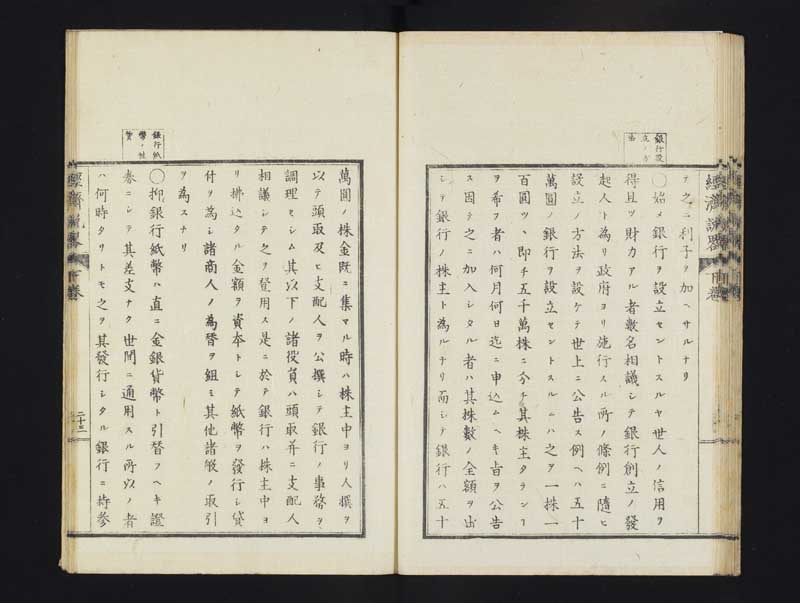 銀行設
立ノ方
法
テ之ニ利子ヲ加ヘサルナリ
〇始メ銀行ヲ設立セントスルヤ世人ノ信用ヲ
得且ツ財力アル者數名相議シテ銀行創立ノ發
起人ト為リ政府ヨリ施行スル所ノ條例ニ隨ヒ
設立ノ方法ヲ設ケテ世上ニ公告ス例ヘハ五十
萬圓ノ銀行ヲ設立セントスルニハ之ヲ一株一
百圓ツヽ即チ五千萬株ニ分チ其株主タランヿ
ヲ希フ者ハ何月何日迄ニ申込ムヘキ旨ヲ公告
ス因テ之ニ加入シタル者ハ其株數ノ全額ヲ出
シテ銀行ノ株主ト為ルナリ而シテ銀行ハ五十
經濟說畧 下卷
銀行紙
幣ノ性
質
萬圓ノ株金既ニ集マル時ハ株主中ヨリ人撰ヲ
以テ頭取及ヒ支配人ヲ公撰シテ銀行ノ事務ヲ
調理セシム其以下ノ諸役員ハ頭取并ニ支配人
相議シテ之ヲ登用ス是ニ於テ銀行ハ株主中ヨ
リ拂込タル金額ヲ資本トシテ紙幣ヲ發行シ貸
付ヲ為シ諸商人ノ為替ヲ組ミ其他諸般ノ取引
ヲ為スナリ
〇抑銀行紙幣ハ直ニ金銀貨幣ト引替フヘキ證
券ニシテ其差支ナク世間ニ通用スル所以ノ者
ハ何時タリトモ之ヲ其發行シタル銀行ニ持參
經濟說畧 下卷
二十二